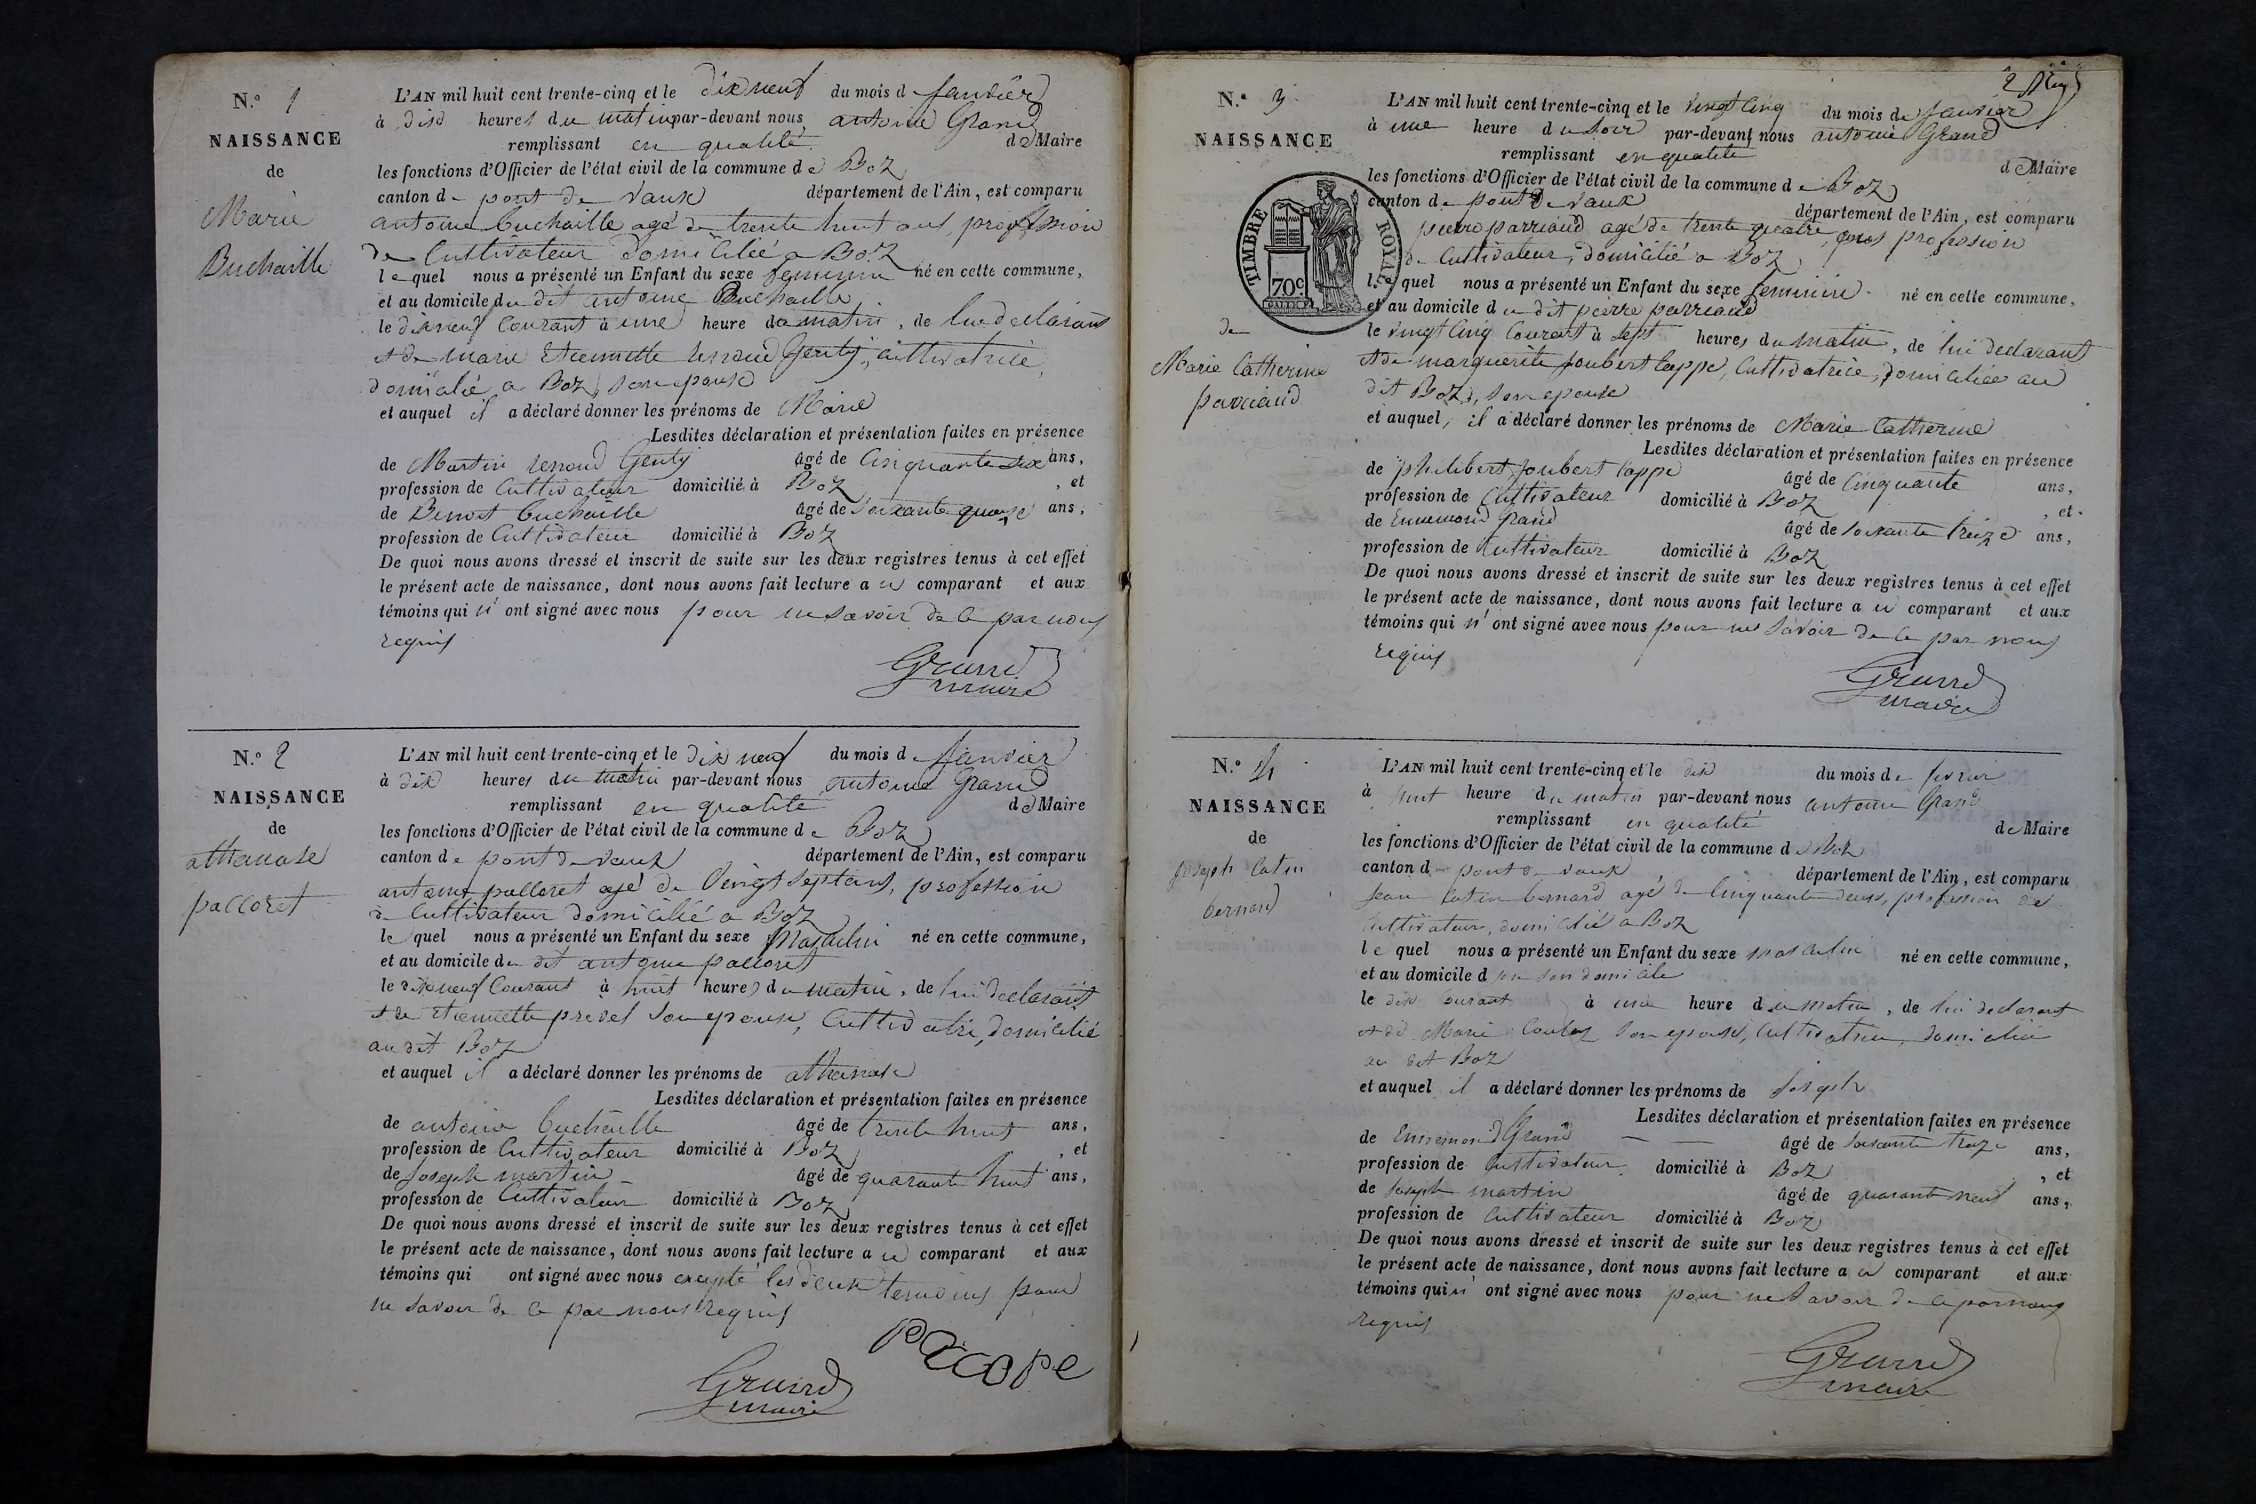 N.° 1
NAISSANCE
de
Marie
Buchaille
L'AN mil huit cent trente-cinq et le dix neuf du mois de Janvier
à dix heures du matin par-devant nous antoine Grand
remplissant en qualité de Maire
les fonctions d'Officier de l'état civil de la commune de Boz
canton de pont de vaux département de l'Ain, est comparu
antoine buchaille agé de trente huit ans, profession
de Cultivateur domiciliée a Boz
lequel nous a présenté un Enfant du sexe feminin né en cette commune,
et au domicile du dit antoine Buchaille
le dix neuf Courant à une heure du matin, de lui declarant
et de marie Etiennette renoud Genty, cultivatrice,
domicilié a Boz, son epouse
et auquel il a déclaré donner les prénoms de Marie
Lesdites déclaration et présentation faites en présence
de Martin renoud Genty âgé de Cinquante six ans,
profession de Cultivateur domicilié à Boz, et
de Benoit buchaille âgé de soixante quinze ans,
profession de Cultivateur domicilié à Boz
De quoi nous avons dressé et inscrit de suite sur les deux registres tenus à cet effet
le présent acte de naissance, dont nous avons fait lecture a ce comparant et aux
témoins qui n'ont signé avec nous pour ne savoir de ce par nous
requis
Grand
maire
N.° 2
NAISSANCE
de
athanase
paccoret
L'AN mil huit cent trente-cinq et le dix neuf du mois de Janvier
à dix heures du matin par-devant nous antoine Grand
remplissant en qualité de Maire
les fonctions d'Officier de l'état civil de la commune de Boz
canton de pont de vaux département de l'Ain, est comparu
antoine paccoret agé de Vingt sept ans, profession
de Cultivateur domicilié a Boz
lequel nous a présenté un Enfant du sexe Masculin né en cette commune,
et au domicile du dit antoine paccoret
le dix neuf Courant à huit heures du matin, de lui declarant
et de Etiennette prevel son epouse, Cultivatrice, domicilié
au dit Boz
et auquel il a déclaré donner les prénoms de athanase
Lesdites déclaration et présentation faites en présence
de antoine buchaille âgé de trente huit ans,
profession de Cultivateur domicilié à Boz, et
de Joseph martin âgé de quarante huit ans,
profession de Cultivateur domicilié à Boz
De quoi nous avons dressé et inscrit de suite sur les deux registres tenus à cet effet
le présent acte de naissance, dont nous avons fait lecture a ce comparant et aux
témoins qui ont signé avec nous excepté les deux temoins pour
ne savoir de ce par nous requis
Grand
maire
N.° 3
NAISSANCE
de
Marie Catherine
parriaud
TIMBRE ROYAL
70c
L'AN mil huit cent trente-cinq et le vingt cinq du mois de Janvier
à une heure du soir par-devant nous antoine Grand
remplissant en qualité de Maire
les fonctions d'Officier de l'état civil de la commune de Boz
canton de pont de vaux département de l'Ain, est comparu
pierre parriaud agé de trente quatre ans profession
de Cultivateur, domicilié a Boz
lequel nous a présenté un Enfant du sexe feminin né en cette commune,
et au domicile du dit pierre parriaud
le vingt cinq Courant à sept heures du matin, de lui declarant
et de marguerite joubert cappe, Cultivatrice, domiciliée au
dit Boz, son epouse
et auquel, il a déclaré donner les prénoms de Marie Catherine
Lesdites déclaration et présentation faites en présence
de philibert joubert cappe âgé de Cinquante ans,
profession de Cultivateur domicilié à Boz, et
de Ennemond Grand âgé de soixante treize ans,
profession de Cultivateur domicilié à Boz
De quoi nous avons dressé et inscrit de suite sur les deux registres tenus à cet effet
le présent acte de naissance, dont nous avons fait lecture a ce comparant et aux
témoins qui n'ont signé avec nous pour ne savoir de ce par nous
requis
Grand
maire
N.° 4
NAISSANCE
de
joseph Catin
bernard
L'AN mil huit cent trente-cinq et le dix du mois de fevrier
à huit heure du matin par-devant nous antoine Grand
remplissant en qualité de Maire
les fonctions d'Officier de l'état civil de la commune de Boz
canton de pont de vaux département de l'Ain, est comparu
Jean Catin bernard agé de Cinquante deux, profession de
Cultivateur, domicilié a Boz
lequel nous a présenté un Enfant du sexe masculin né en cette commune,
et au domicile d son domicile
le dix courant à une heure du matin, de lui declarant
et de Marie son epouse, Cultivatrice, domiciliée
au dit Boz
et auquel il a déclaré donner les prénoms de Joseph
Lesdites déclaration et présentation faites en présence
de Ennemond Grand âgé de soixante treize ans,
profession de Cultivateur domicilié à Boz, et
de Joseph martin âgé de quarant neuf ans,
profession de Cultivateur domicilié à Boz
De quoi nous avons dressé et inscrit de suite sur les deux registres tenus à cet effet
le présent acte de naissance, dont nous avons fait lecture a ce comparant et aux
témoins qui n'ont signé avec nous pour ne savoir de ce par nous
requis
Grand
maire